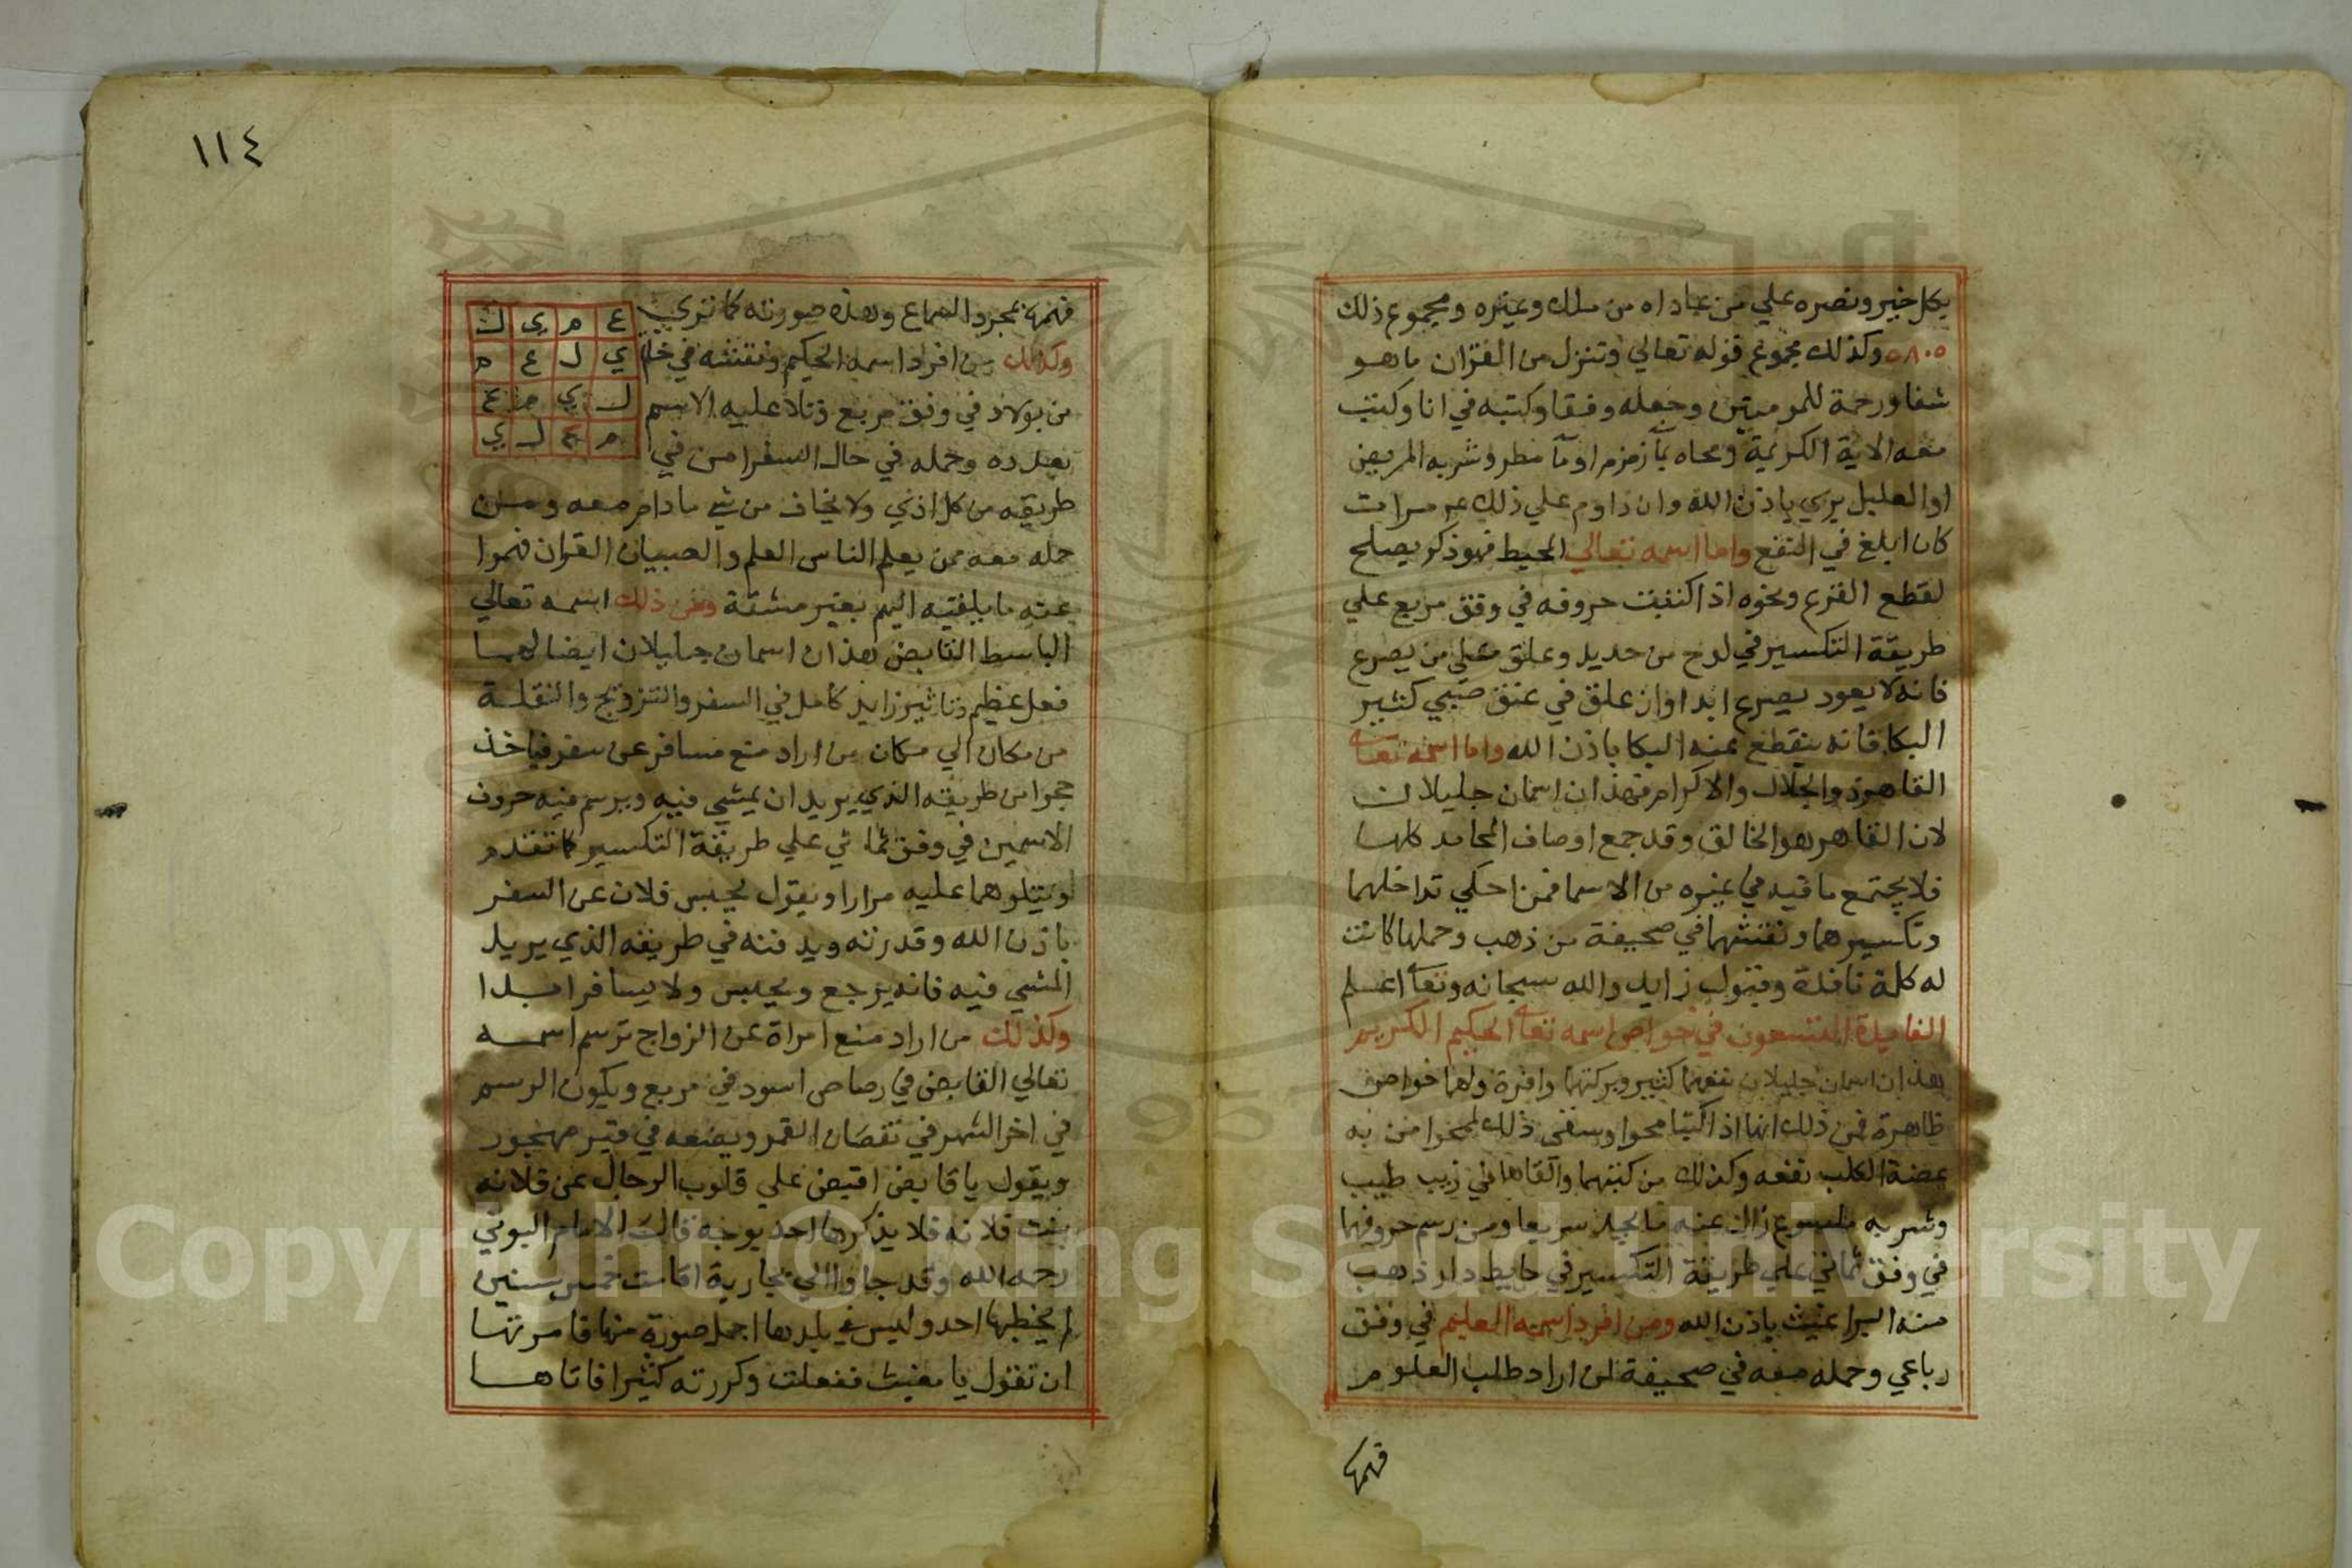 بكل خير ونصره علي من عاداه من ملك وغيره ومجموع ذلك
٥٨٠٥ وكذلك مجموع قوله تعالي وتنزل من القران ما هو
شفا ورحمة للمومنين وجعله وفقا وكتبه في انا وكتب
معه الاية الكريمة ومحاه بمآ زمزم او مآ مطر وشربه المريض
او العليل بري باذن الله وان داوم علي ذلك مرات
كان ابلغ في النفع واما اسمه تعالي المحيط فهو ذكر يصلح
لقطع الفزع ونحوه اذا كتبت حروفه في وفق مربع علي
طريقة التكسير في لوح من حديد وعلق علي من يصرع
فانه لا يعود يصرع ابدا وان علق في عنق صبي كثير
البكا فانه ينقطع عنه البكا باذن الله واما اسمه تعا
القاهر ذو الجلال والاكرام فهذان اسمان جليلان
لان القاهر هو الخالق وقد جمع اوصاف المحامد كلها
فلا يجتمع ما فيه في غيره من الاسما فمن احكي تداخلهما
وتكسيرهما ونقشهما في صحيفة من ذهب وحملها كانت
له كلمة نافذة وقبول زايد والله سبحانه وتعا اعلم
الفايدة التسعون في خواص اسمه تعا الحكيم الكريم
هذان اسمان جليلان نفعهما كثير وبركتهما وافرة ولهما خواص
ظاهرة فمن ذلك انها اذا كتبا محوا وسقي ذلك المحوا من به
عضة الكلب نفعه وكذلك من كتبهما والقاهما في زيت طيب
وشربه ملسوع زال عنه ما يجد سريعا ومن رسم حروفهما
في وفق ثماني علي طريقة التكسير في حايط دار ذهب
منه البراغيث باذن الله ومن افرد اسمه العليم في وفق
رباعي وحمله معه في صحيفة لمن اراد طلب العلوم
فهمها
١١٤
فهمها بمجرد السماع وهذه صورته كما تري
ع م ي ل
ي ل ع م
ل ي م ع
م ع ل ي
وكذلك من افرد اسمه الحكيم ونقشه في خاتم
من بولاد في وفق مربع وتلا عليه الاسم
بعدده وحمله في حال السفر امن في
طريقه من كل اذي ولا يخاف من شي ما دام معه ومن
حمله معه ممن يعلم الناس العلم والصبيان القران فهموا
عنه ما يلقيه اليهم بغير مشقة ومن ذلك اسمه تعالي
الباسط القابض هذان اسمان جليلان ايضا لهما
فعل عظيم وتاثير زايد كامل في السفر والتزويج والنقلة
من مكان الي مكان من اراد منع مسافر عن سفر فياخذ
حجرا من طريقه الذي يريد ان يمشي فيه ويرسم فيه حروف
الاسمين في وفق ثماني علي طريقة التكسير كما تقدم
ويتلوهما عليه مرارا ويقول يحبس فلان عن السفر
باذن الله وقدرته ويدفنه في طريقه الذي يريد
المشي فيه فانه يرجع ويحبس ولا يسافر ابدا
وكذلك من اراد منع امراة عن الزواج ترسم اسمه
تعالي القابض في رصاص اسود في مربع ويكون الرسم
في اخر الشهر في نقصان القمر ويضعه في قبر مهجور
ويقول يا قابض اقبض علي قلوب الرجال عن فلانه
بنت فلانه فلا يذكرها احد بوجه قال الامام البوني
رحمه الله وقد جاوا الي بجارية اقامت خمس سنين
لم يخطبها احد وليس في بلدها اجمل صورة منها فامرتها
ان تقول يا مغيث ففعلت وكررته كثيرا فاتاها
Copyright © King Saud University